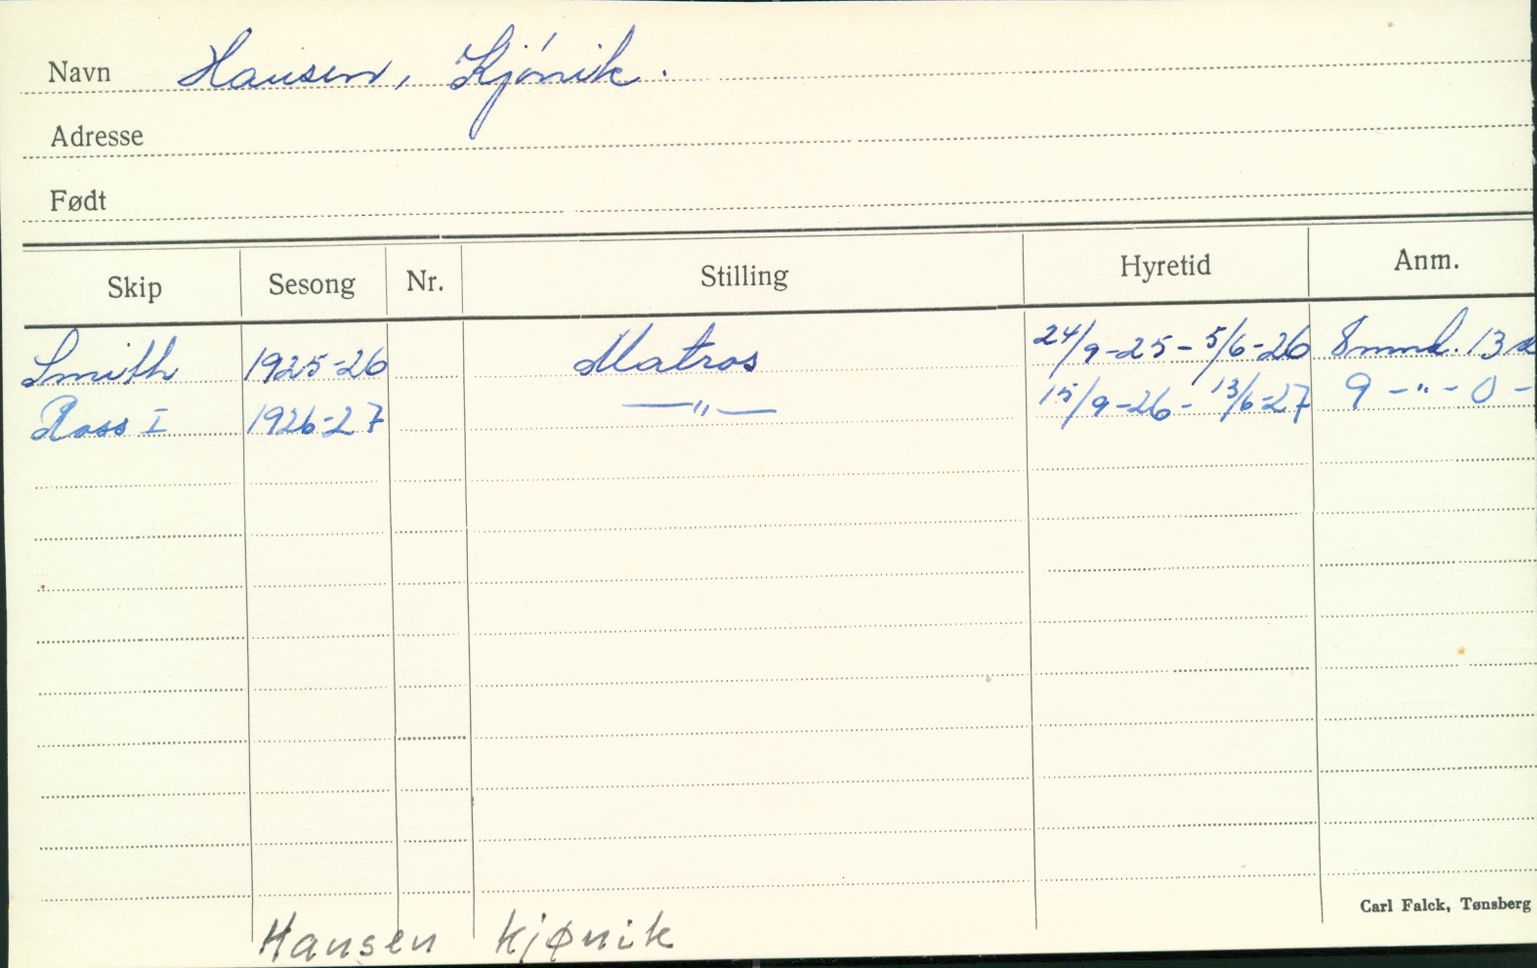 Navn Hansen, Kjónik.
Adresse
Født
Skip Sesong Nr. Stilling Hyretid Anm.
Smith 1925-26 Matros 24/9-25 - 5/6-26 8 mnd. 13 d
Ross I 1926-27 —"— 15/9-26 - 13/6-27 9 -"- 0 -
Carl Falck, Tønsberg
Hansen Kjønik